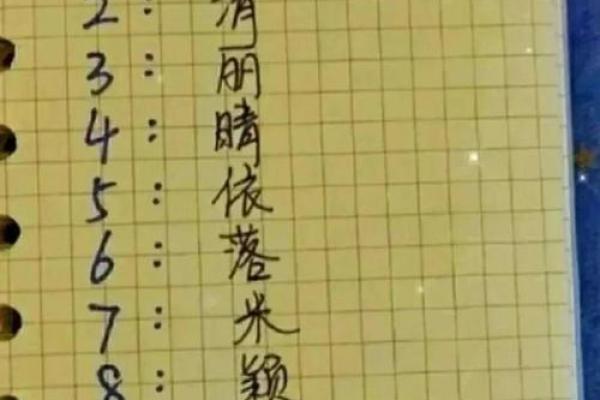 2：
3：朋
4：晴
5：依
6：落
7：米
8：颖